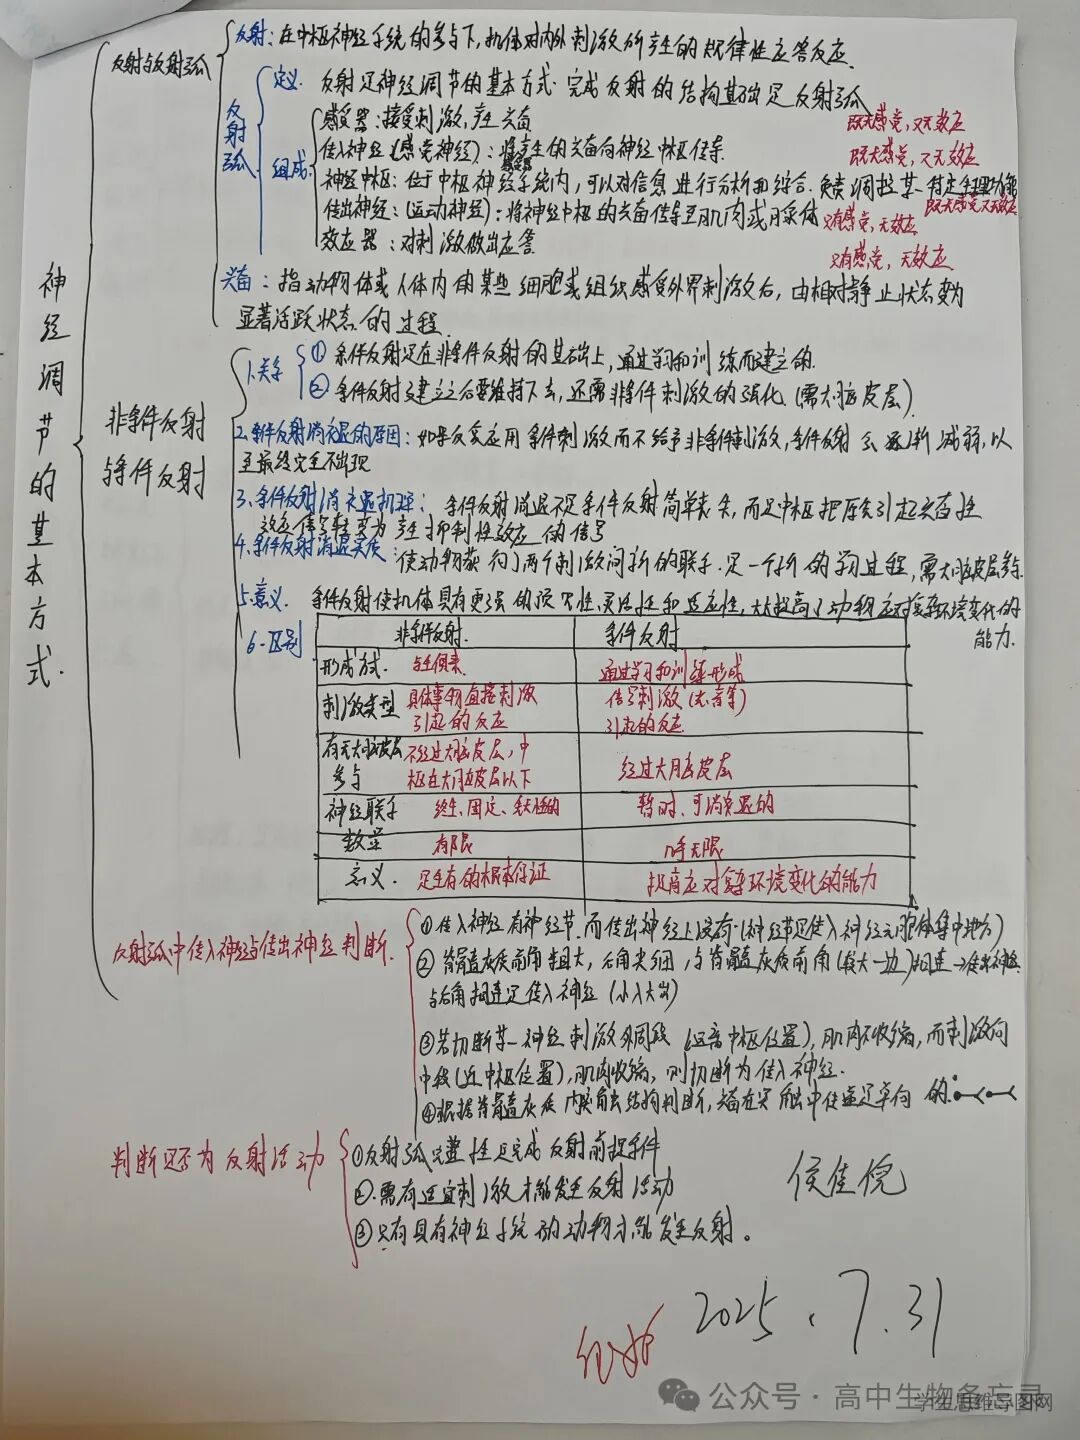 神经调节的基本方式.
反射与反射弧
反射: 在中枢神经系统的参与下, 机体对内外刺激所产生的规律性应答反应.
反射弧
定义. 反射是神经调节的基本方式. 完成反射的结构基础是反射弧
组成
感受器: 接受刺激, 产生兴奋 既无感觉, 又无效应
传入神经 (感觉神经): 将产生的兴奋向神经中枢传导. 既无感觉, 又无效应
神经中枢: 位于中枢神经系统内, 可以对信息进行分析和综合. 负责调控某一特定生理功能
既无感觉又无效应
传出神经: (运动神经): 将神经中枢的兴奋传导至肌肉或腺体 只有感觉, 无效应
效应器: 对刺激做出应答 只有感觉, 无效应.
兴奋: 指动物体或人体内的某些细胞或组织感受外界刺激后, 由相对静止状态变为
显著活跃状态的过程.
非条件反射
与条件反射
1.关系
① 条件反射是在非条件反射的基础上, 通过学习和训练而建立的.
② 条件反射建立之后要维持下去, 还需非条件刺激的强化. (需大脑皮层)
2.条件反射消退的原因: 如果反复应用条件刺激而不给予非条件刺激, 条件反射会逐渐减弱, 以
至最终完全不出现
3.条件反射消退机理: 条件反射消退不是条件反射简单丧失, 而是中枢把原先引起兴奋性
效应信号转变为产生抑制性效应的信号
4.条件反射消退实质: 使动物获得了两个刺激间新的联系. 是一个新的学习过程, 需大脑皮层参与.
5.意义. 条件反射使机体具有更强的预见性, 灵活性和适应性, 大大提高了动物应对复杂环境变化的
能力.
6.区别
非条件反射. 条件反射
形成方式. 与生俱来 通过学习和训练形成
刺激类型 具体事物直接刺激 信号刺激 (光. 音等)
引起的反应 引起的反应
有无大脑皮层 不经过大脑皮层, 中
参与 枢在大脑皮层以下 经过大脑皮层
神经联系 终生、固定、 暂时、可消退的
数量 有限 几乎无限
意义. 是生存的根本保证 提高应对复杂环境变化的能力
反射弧中传入神经与传出神经判断.
①传入神经有神经节. 而传出神经上没有. (神经节是传入神经元胞体集中地方)
② 脊髓灰质前角粗大, 后角尖细, 与脊髓灰质前角 (较大一边) 相连→传出神经
与后角相连是传入神经 (小入大出)
③若切断某一神经刺激外周段 (远离中枢位置), 肌肉不收缩, 而刺激向
中段 (近中枢位置), 肌肉收缩, 则切断为传入神经.
④根据脊髓灰质内突触结构判断, 兴奋在突触中传递是单向的.
判断是否为反射活动
①反射弧完整性是完成反射前提条件
②.需有适宜刺激才能发生反射活动
③只有具有神经系统的动物才能发生反射。
侯佳悦
2025.7.31
公众号·高中生物备忘录
学生思维导图网